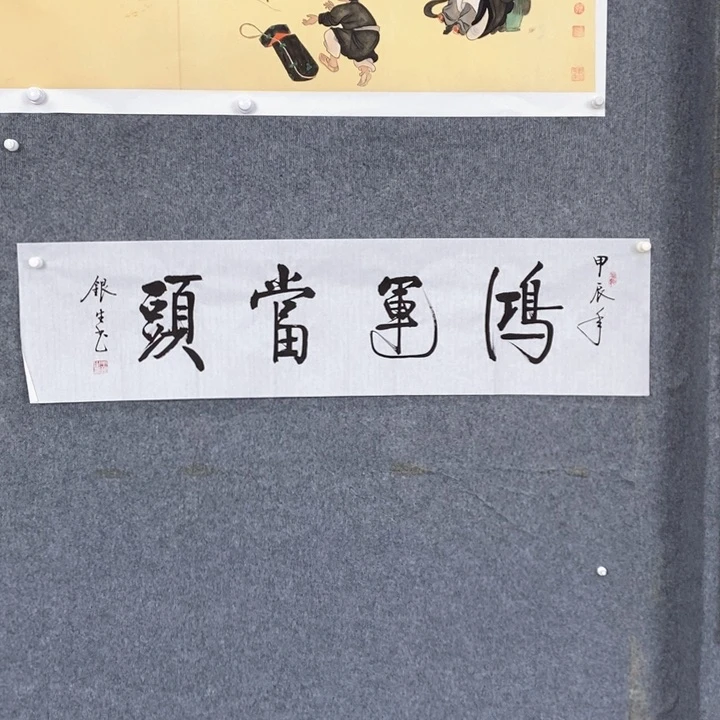 甲辰年
鴻運當頭
銀生書